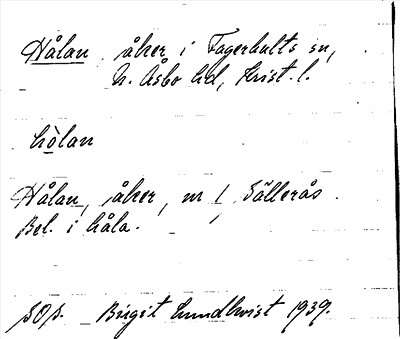 Hålan, åker i Fagerhults sn,
N. Åsbo hd, Krist. l.
hòlan
Hålan, åker, nr 1, Sällerås.
Bel. i håla.
SOP. Birgit Lundkvist 1939.